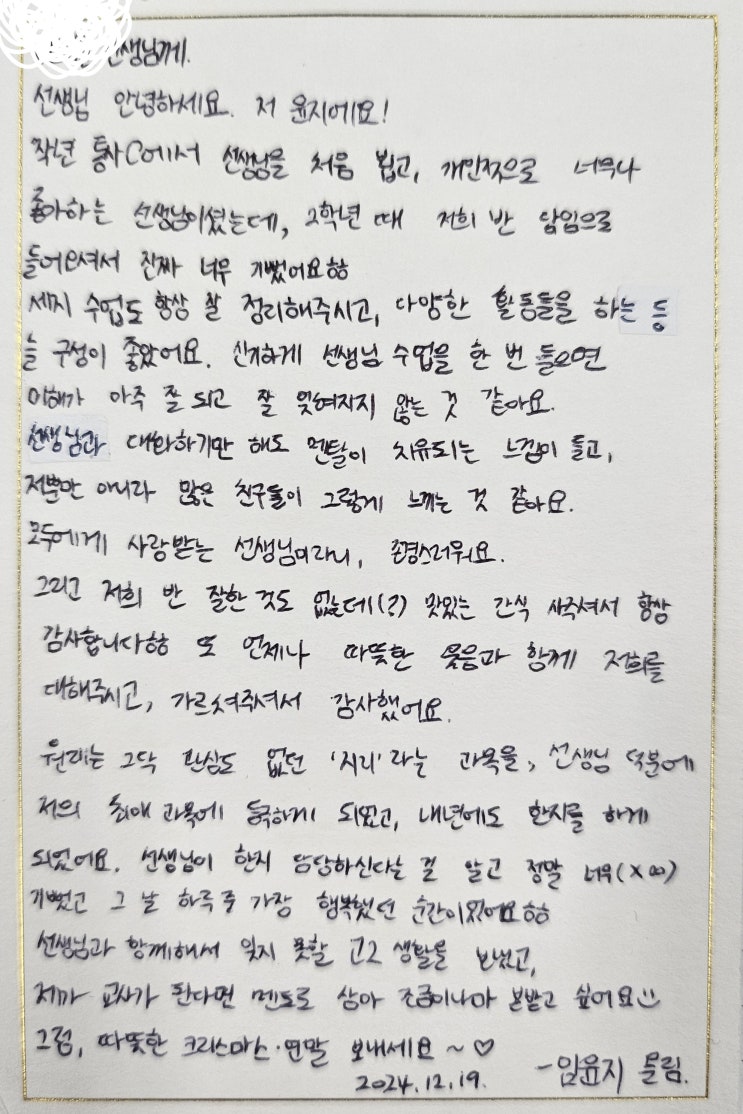 선생님께.
선생님 안녕하세요. 저 윤지에요!
작년 통사C에서 선생님을 처음 뵙고, 개인적으로 너무나
좋아하는 선생님이셨는데, 2학년 때 저희 반 담임으로
들어오셔서 진짜 너무 기뻤어요ㅎㅎ
세지 수업도 항상 잘 정리해주시고, 다양한 활동들을 하는 등
늘 구성이 좋았어요. 신기하게 선생님 수업을 한 번 들으면
이해가 아주 잘 되고 잘 잊혀지지 않는 것 같아요.
선생님과 대화하기만 해도 멘탈이 치유되는 느낌이 들고,
저뿐만 아니라 많은 친구들이 그렇게 느끼는 것 같아요.
모두에게 사랑받는 선생님이라니, 존경스러워요.
그리고 저희 반 잘한 것도 없는데(?) 맛있는 간식 사주셔서 항상
감사합니다ㅎㅎ 또 언제나 따뜻한 웃음과 함께 저희를
대해주시고, 가르쳐주셔서 감사했어요.
원래는 그닥 관심도 없던 '지리'라는 과목을, 선생님 덕분에
저의 최애 과목에 등극하게 되었고, 내년에도 한지를 하게
되었어요. 선생님이 한지 담당하신다는 걸 알고 정말 너무(×∞)
기뻤고 그 날 하루 중 가장 행복했던 순간이었어요ㅎㅎ
선생님과 함께해서 잊지 못할 고2 생활을 보냈고,
제가 교사가 된다면 멘토로 삼아 조금이나마 본받고 싶어요☺
그럼, 따뜻한 크리스마스·연말 보내세요 ~ ♡
2024.12.19. -임윤지 올림.